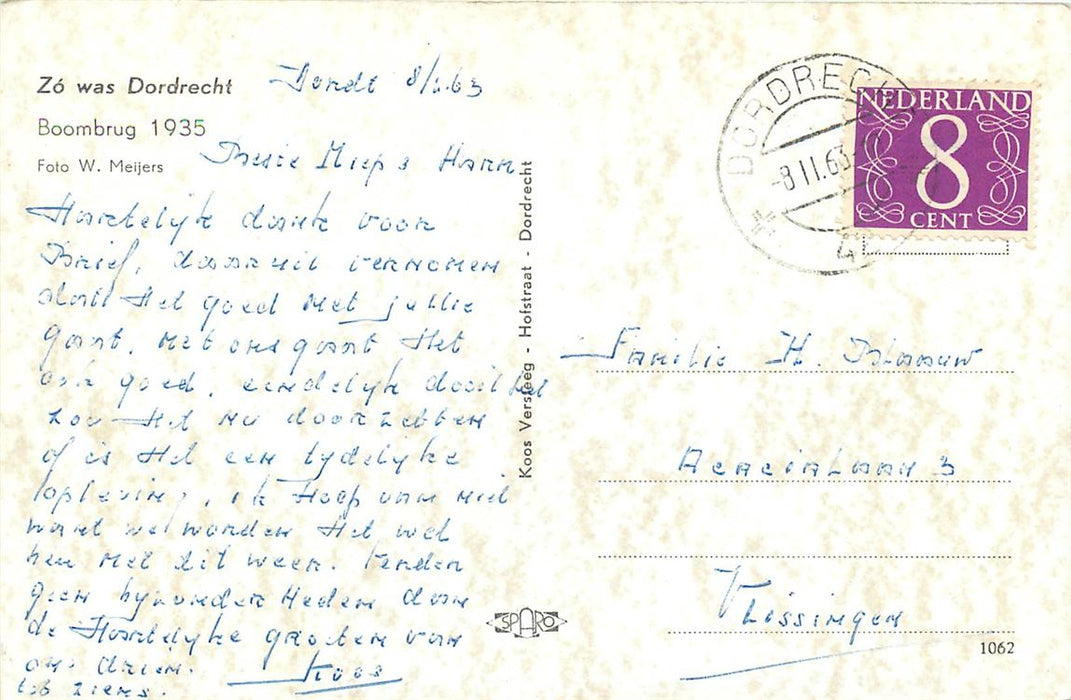 Zó was Dordrecht
Boombrug 1935
Foto W. Meijers
Dordt 8/2.63
Beste Miep & Harm
Hartelijk dank voor
Brief, daaruit vernomen
dat Het goed met jullie
gaat. met ons gaat Het
ook goed, eindelijk dooit het
zou Het nu doorzetten
of is Het een tydelyke
opleving, ik Hoop van niet
want we worden Het wel
beu met dit weer. Verder
geen byzonder Heden dan
de Hartelijke groeten van
ons drieen.
tot ziens. Koos
Koos Versteeg - Hofstraat - Dordrecht
SPARO
DORDRECHT
-8 II.63
4
NEDERLAND
8
CENT
Familie H. Blaauw
Acacialaan 3
Vlissingen
1062